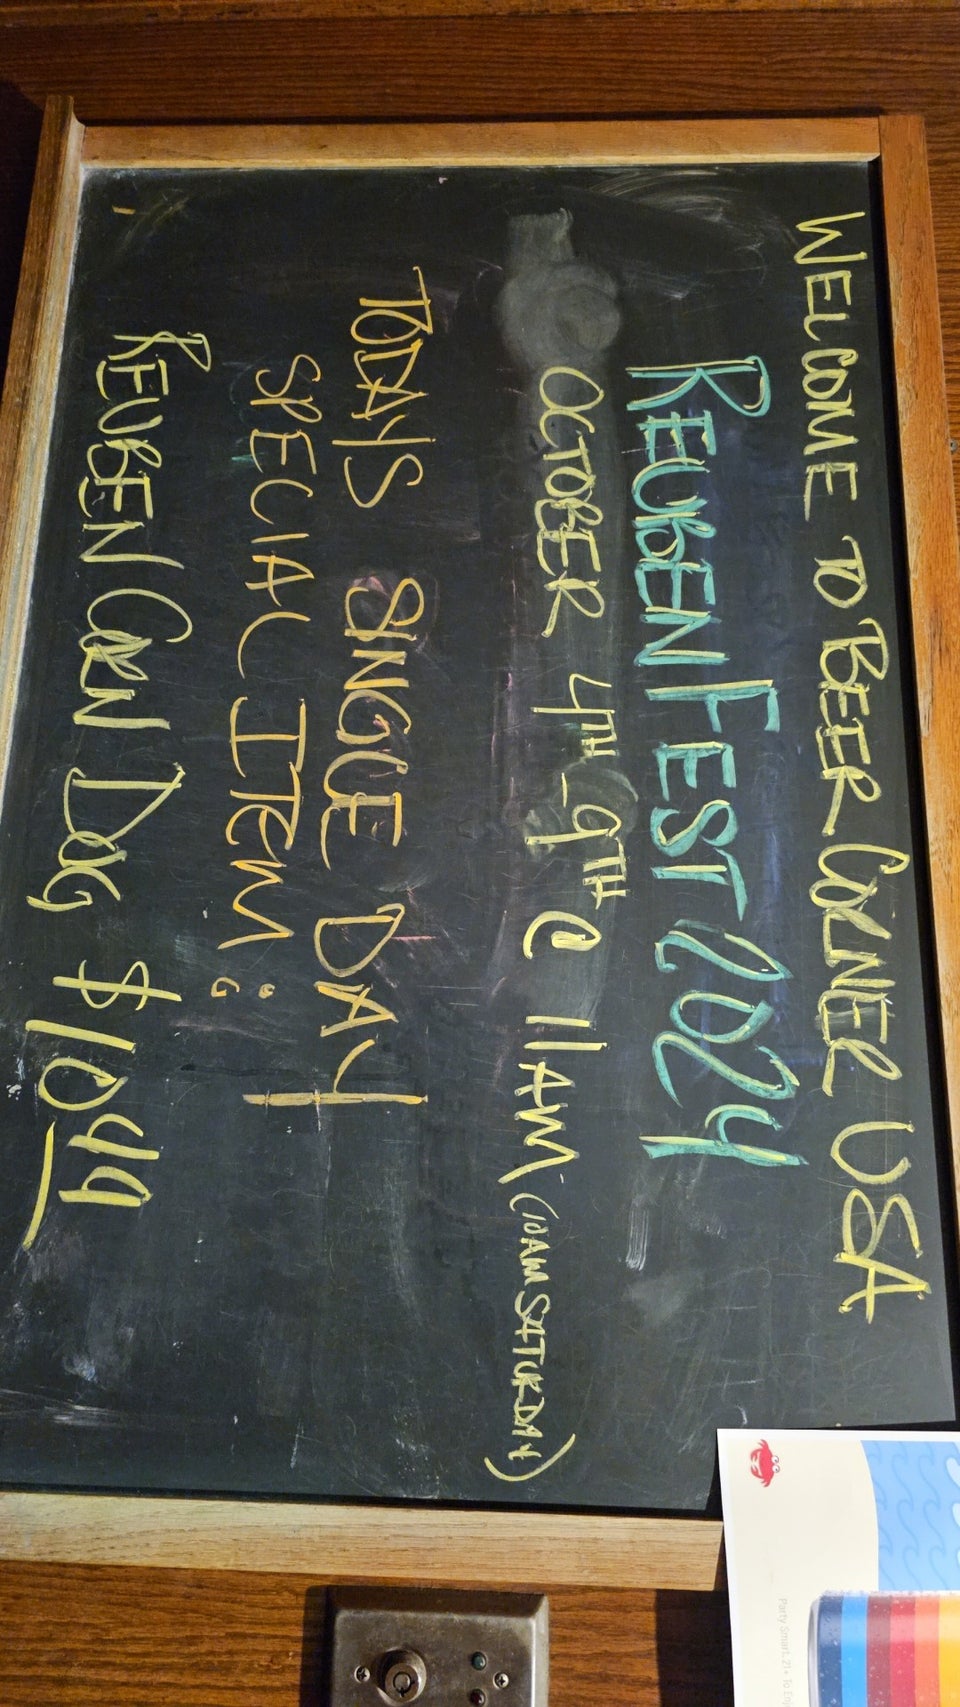 WELCOME TO BEER CORNER USA
REUBEN FEST 2024
OCTOBER 4TH-9TH @ 11AM (10AM SATURDAY)
TODAYS SINGLE DAY
SPECIAL ITEM:
REUBEN CORN DOG $10.99
Party Smart. 21+ To